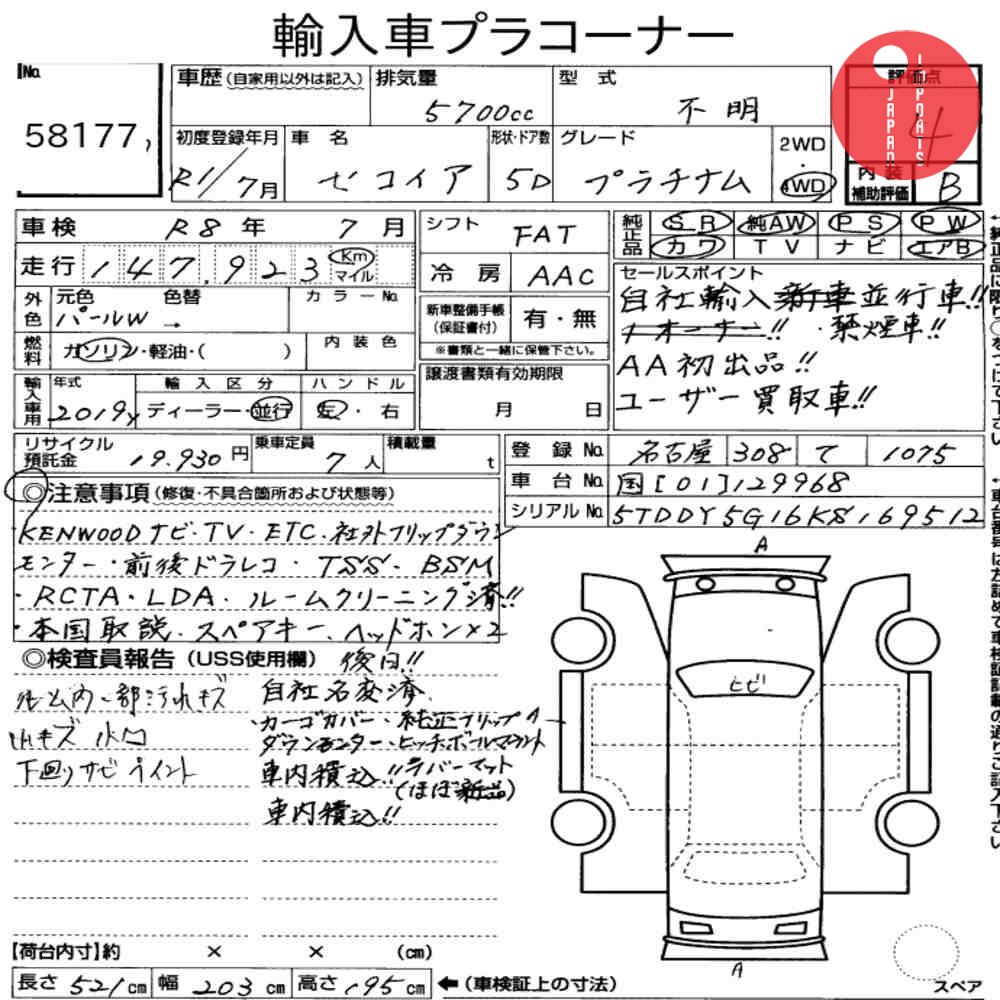 輸入車プラコーナー
No. 58177,
車歴(自家用以外は記入) 排気量 5700cc 型式 不明
評価点 4
JAPAN IMPORTS
初度登録年月 R1/7月 車名 セコイア 形状・ドア数 5D グレード プラチナム 2WD・4WD
内装補助評価 B
車検 R8年 7月 シフト FAT
純正品 SR 純AW PS PW
カワ TV ナビ エアB
走行 147,923 Km マイル 冷房 AAC
外色 元色 パールW 色替 → カラーNo.
新車整備手帳(保証書付) 有・無
※書類と一緒に保管下さい。
燃料 ガソリン・軽油・( ) 内装色
セールスポイント
自社輸入 新車並行車!!
1オーナー!!・禁煙車!!
AA初出品!!
ユーザー買取車!!
輸入車用 年式 2019y 輸入区分 ディーラー・並行 ハンドル 左・右
譲渡書類有効期限 月 日
リサイクル預託金 19.930円 乗車定員 7人 積載量 t
登録No. 名古屋 308 て 1075
車台No. 国[01]129968
シリアルNo. 5TDDY5G16KS169512
◎注意事項(修復・不具合箇所および状態等)
・KENWOODナビ・TV・ETC・社外フリップダウン
モンター・前後ドラレコ・TSS・BSM
・RCTA・LDA・ルームクリーニング済!!
・本国取説・スペアキー・ヘッドホン×2
後日!!
◎検査員報告(USS使用欄)
自社名変済
・カーゴカバー・純正フリップ
ダウンモンター・ヒッチボールマウント
車内積込!! ラバーマット
(ほぼ新品)
車内積込!!
内一部汚れキズ
キズ 凹
下回りサビ ペイント
A
ヒビ
A
A
【荷台内寸】約 × × (cm)
長さ 521cm 幅 203cm 高さ 195cm ←(車検証上の寸法)
スペア